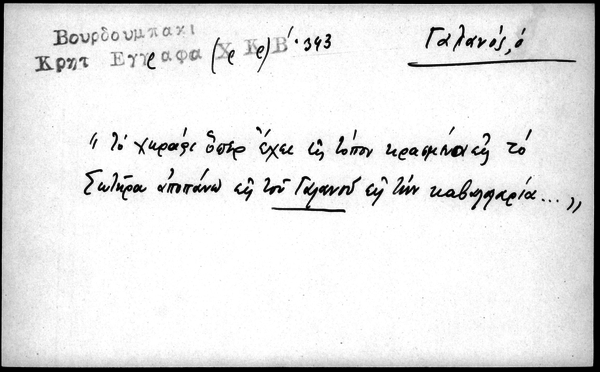 Βουρδουμπακι
Κρητ Εγγραφα (ρ ρ) Χ Κ Β΄. 343
Γαλανός, ὁ
"τό χωράφι ὅπερ ἔχει εἰς τόπον εἰς τό
Σωτῆρα ἀποπάνω εἰς τοῦ Γαλανοῦ εἰς τήν καβαλλαρία...„